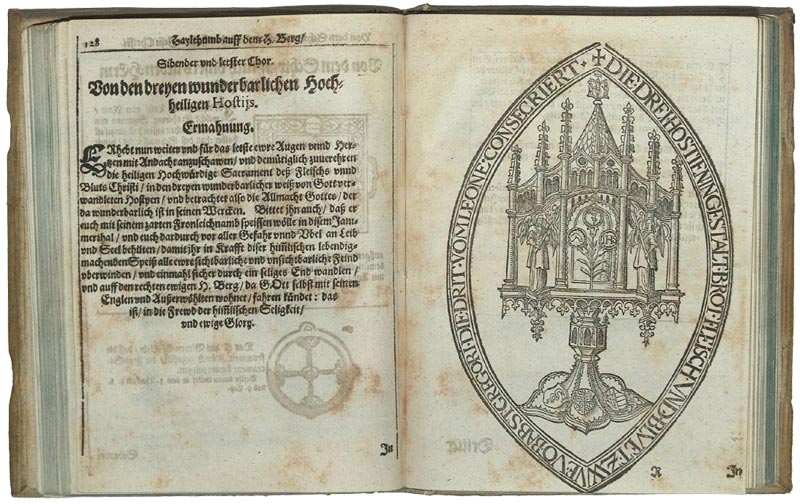 128 Haylthumb auff dem H. Berg/
Sibender vnd letster Chor.
Von den dreyen wunderbarlichen Hoch-
heiligen Hostijs.
Ermahnung.
ERhebt nun weiter vnd für das letste ewre Augen vnnd Her-
tzen mit Andacht anzuschawen/ vnd demütiglich zuuerehren
die heiligen Hochwürdige Sacrament deß Fleischs vnnd
Bluts Christi/ in den dreyen wunderbarlicher weiß von Gott ver-
wandleten Hostyen/ vnd betrachtet also die Allmacht Gottes/ der
da wunderbarlich ist in seinen Wercken. Bittet jhn auch/ daß er
euch mit seinem zarten Fronleichnamb speissen wölle in disem Jam-
merthal/ vnd euch dardurch vor aller Gefahr vnnd Vbel an Leib
vnd Seel behüten/ damit jhr in Krafft diser himlischen lebendig-
machenden Speiß alle ewre sichtbarliche vnd vnsichtbarliche Feind
vberwinden/ vnd einmahl sicher durch ein seliges End wandlen/
vnd auff den rechten ewigen H. Berg/ da GOtt selbst mit seinen
Englen vnd Außerwöhlten wohnet/ fahren kündet: das
ist/ in die Frewd der himlischen Seligkeit/
vnd ewige Glory.
Jn
✠ DIE DREI HOSTIEN IN GESTALT BROT FLEISCH VND BLVET ZWVE VO BABST GREGORI DIE DRIT VOM LEONE CONSECRIERT
R Jn